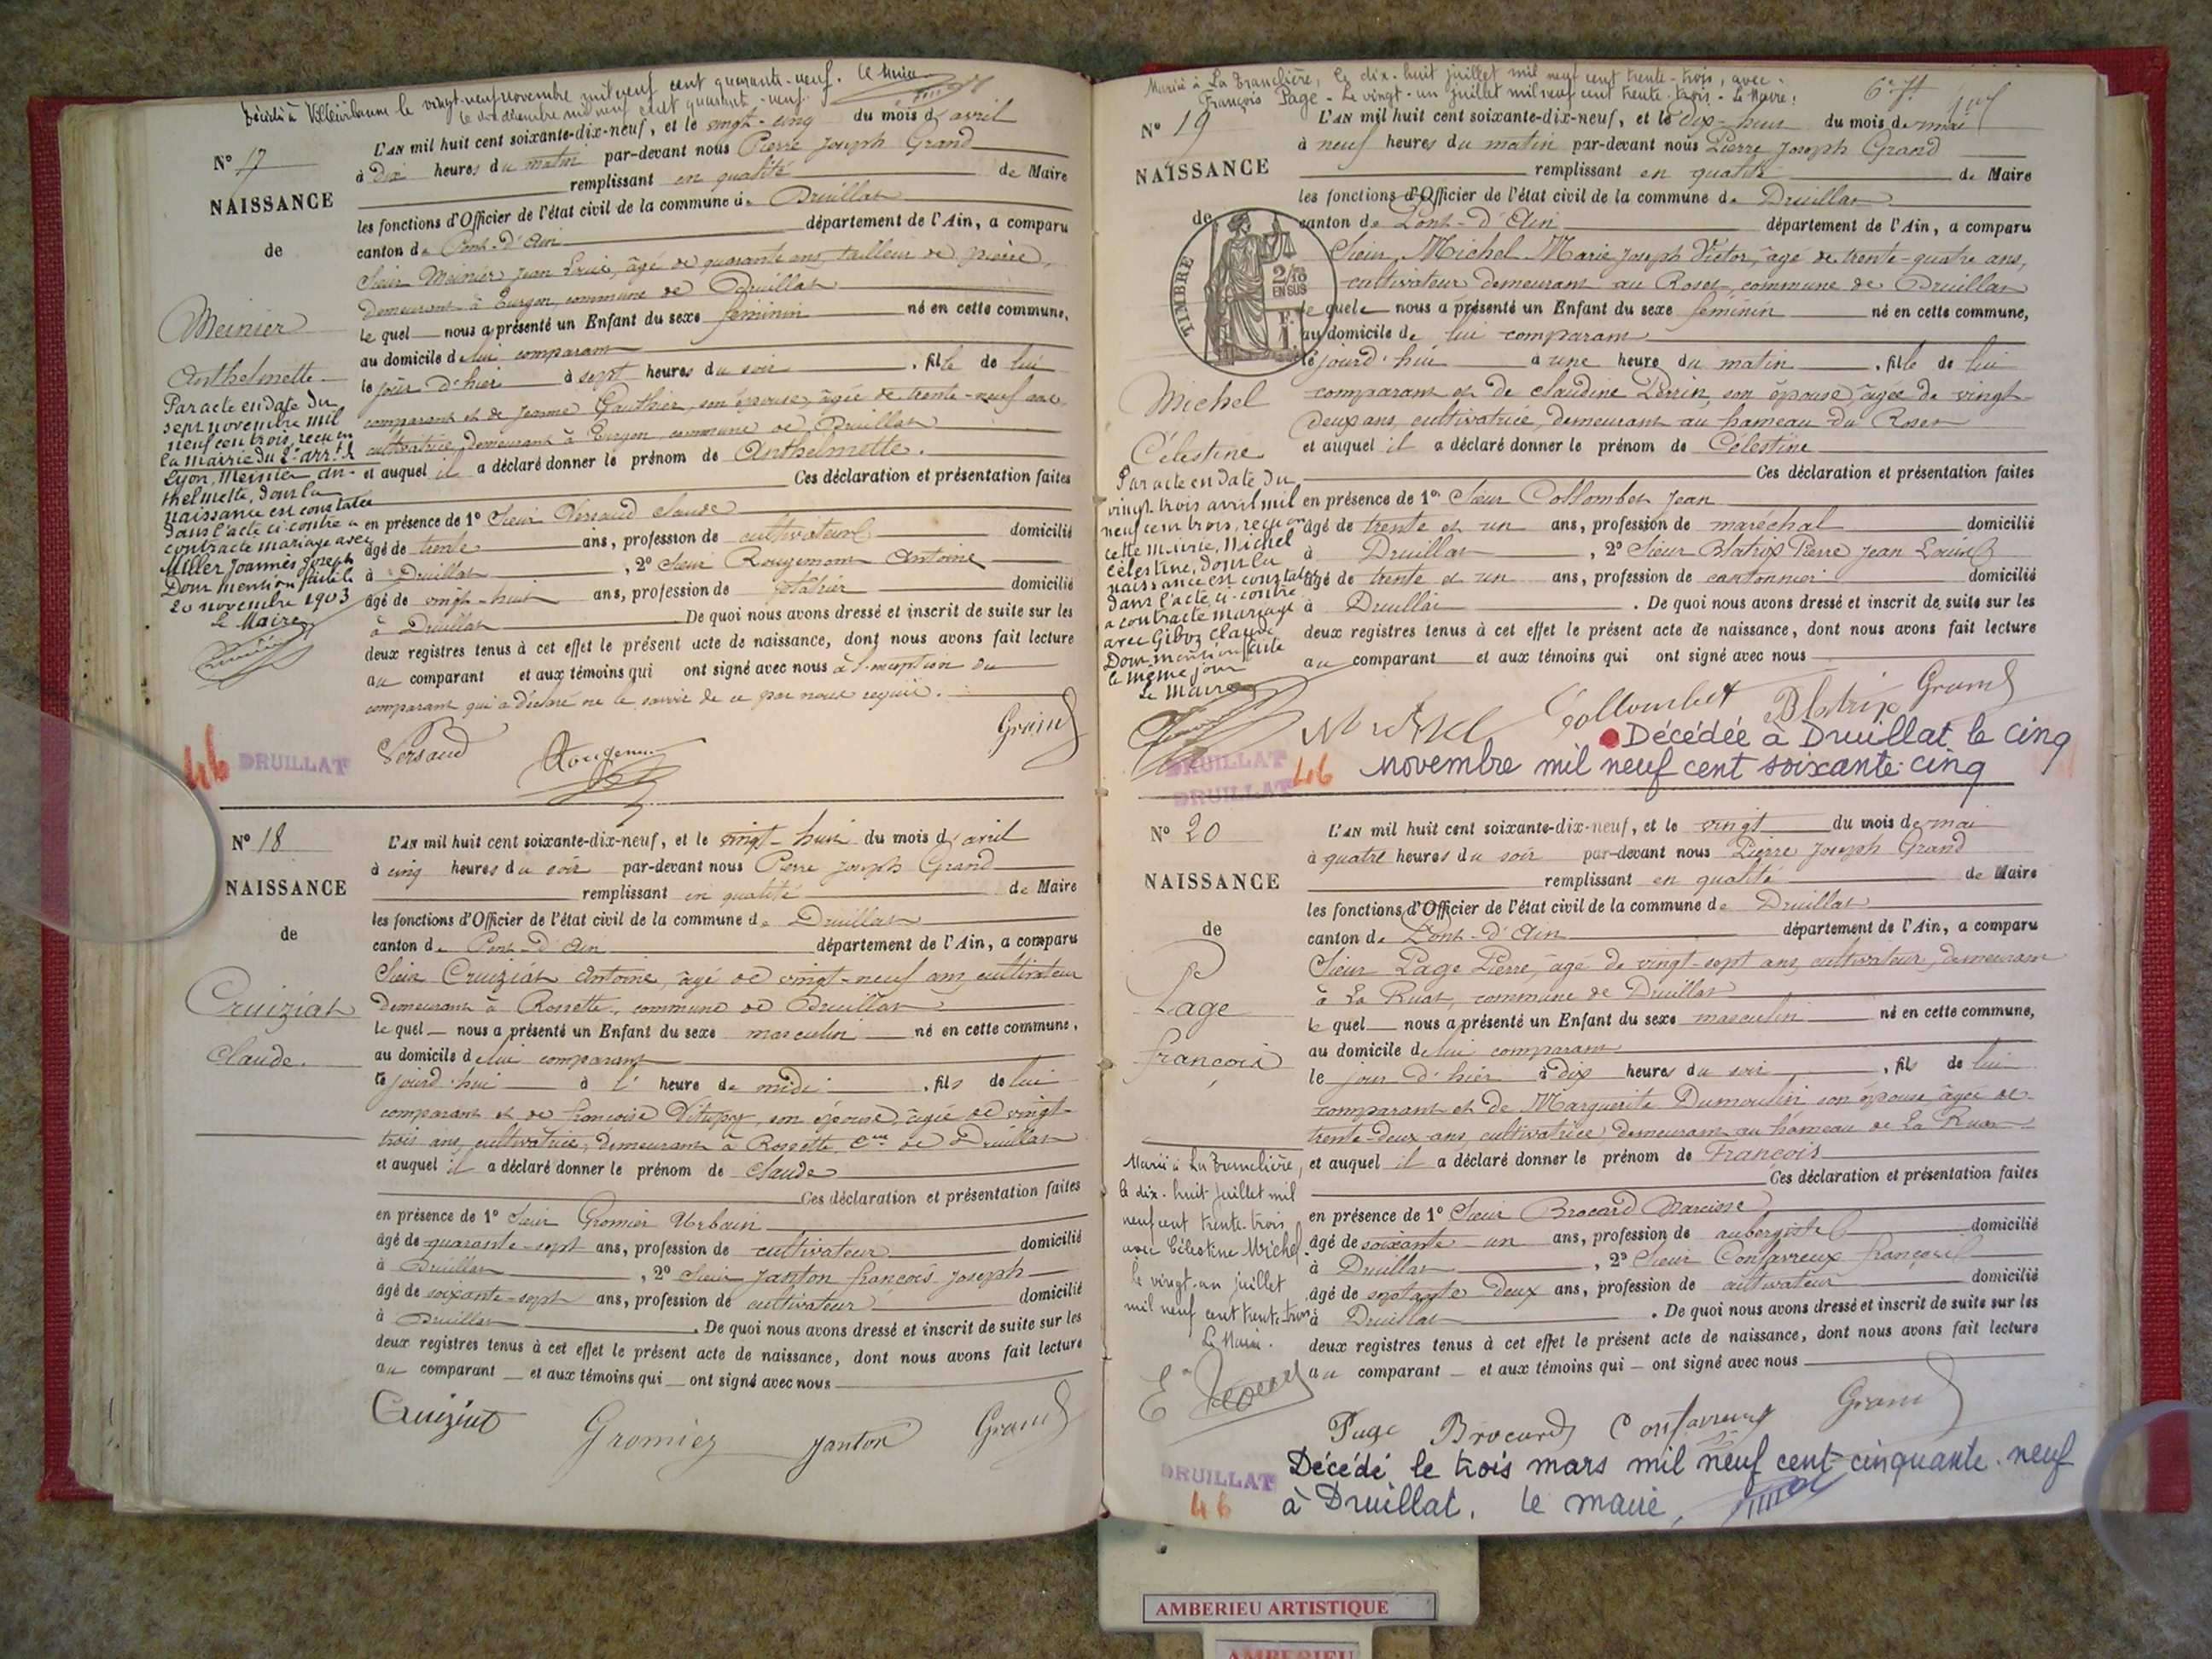 Décédée à Villeurbanne le vingt-neuf novembre mil neuf cent quarante-neuf. Le Maire
le dix décembre mil neuf cent quarante-neuf
N° 17
NAISSANCE
de
Meinier
Anthelmette
Par acte en date du
sept novembre mil
neuf cent trois, reçu en
la mairie du 2e arrt de
Lyon, Meinier An-
thelmette, dont la
naissance est constatée
dans l'acte ci-contre a
contracté mariage avec
Miller Joannès Joseph
Pour mention faite le
20 novembre 1903
Le Maire
L'AN mil huit cent soixante-dix-neuf, et le vingt-cinq du mois d'avril
à dix heures du matin par-devant nous Pierre Joseph Grand
remplissant en qualité de Maire
les fonctions d'Officier de l'état civil de la commune de Druillat
canton de Pont-d'Ain département de l'Ain, a comparu
Sieur Meinier Jean Louis, âgé de quarante ans, tailleur de pierre,
demeurant à Turgon, commune de Druillat
le quel nous a présenté un Enfant du sexe féminin né en cette commune,
au domicile de lui comparant
le jour d'hier à sept heures du soir, fille de lui
comparant et de Jeanne Gauthier, son épouse, âgée de trente-neuf ans
cultivatrice, demeurant à Turgon commune de Druillat
et auquel il a déclaré donner le prénom de Anthelmette.
Ces déclaration et présentation faites
en présence de 1° Sieur Versaud Claude
âgé de trente ans, profession de cultivateur domicilié
à Druillat, 2° Sieur Rougemont Antoine
âgé de vingt-huit ans, profession de plâtrier domicilié
à Druillat De quoi nous avons dressé et inscrit de suite sur les
deux registres tenus à cet effet le présent acte de naissance, dont nous avons fait lecture
au comparant et aux témoins qui ont signé avec nous à l'exception du
comparant qui a déclaré ne le savoir de ce par nous requis.
Versaud Rougemont Grand
46 DRUILLAT
N° 18
NAISSANCE
de
Cruiziat
Claude.
L'AN mil huit cent soixante-dix-neuf, et le vingt-huit du mois d'avril
à cinq heures du soir par-devant nous Pierre Joseph Grand
remplissant en qualité de Maire
les fonctions d'Officier de l'état civil de la commune de Druillat
canton de Pont-d'Ain département de l'Ain, a comparu
Sieur Cruiziat Antoine, âgé de vingt-neuf ans, cultivateur
demeurant à Rossette, commune de Druillat
le quel nous a présenté un Enfant du sexe masculin né en cette commune,
au domicile de lui comparant
ce jourd'hui à l' heure de midi, fils de lui
comparant et de Françoise son épouse âgée de vingt-
trois ans, cultivatrice, demeurant à Rossette, Cne de Druillat
et auquel il a déclaré donner le prénom de Claude
Ces déclaration et présentation faites
en présence de 1° Sieur Gromier Urbain
âgé de quarante-sept ans, profession de cultivateur domicilié
à Druillat, 2° Sieur Janton François Joseph
âgé de soixante-sept ans, profession de cultivateur domicilié
à Druillat. De quoi nous avons dressé et inscrit de suite sur les
deux registres tenus à cet effet le présent acte de naissance, dont nous avons fait lecture
au comparant et aux témoins qui ont signé avec nous
Cruiziat Gromier Janton Grand
Mariée à La Tranclière, le dix-huit juillet mil neuf cent trente-trois, avec
François Page - Le vingt-un juillet mil neuf cent trente-trois - Le Maire:
N° 19
NAISSANCE
de
TIMBRE
2/10
EN SUS
F.
1
Michel
Célestine
Par acte en date du
vingt trois avril mil
neuf cent trois, reçu en
cette mairie, Michel
Célestine, dont la
naissance est constatée
dans l'acte ci-contre
a contracté mariage
avec Giboz Claude
Pour mention faite
le même jour
Le Maire
L'AN mil huit cent soixante-dix-neuf, et le dix-huit du mois de mai
à neuf heures du matin par-devant nous Pierre Joseph Grand
remplissant en qualité de Maire
les fonctions d'Officier de l'état civil de la commune de Druillat
canton de Pont-d'Ain département de l'Ain, a comparu
Sieur Michel Marie Joseph Victor, âgé de trente-quatre ans,
cultivateur demeurant au Roset, commune de Druillat
le quel nous a présenté un Enfant du sexe féminin né en cette commune,
au domicile de lui comparant
ce jourd'hui à une heure du matin, fille de lui
comparant et de Claudine Perrin, son épouse, âgée de vingt-
deux ans, cultivatrice, demeurant au hameau du Roset
et auquel il a déclaré donner le prénom de Célestine
Ces déclaration et présentation faites
en présence de 1° Sieur Collombet Jean
âgé de trente et un ans, profession de maréchal domicilié
à Druillat, 2° Sieur Blatrix Pierre Jean Louis
âgé de trente et un ans, profession de cantonnier domicilié
à Druillat. De quoi nous avons dressé et inscrit de suite sur les
deux registres tenus à cet effet le présent acte de naissance, dont nous avons fait lecture
au comparant et aux témoins qui ont signé avec nous
Michel Collombet Blatrix Grand
Décédée à Druillat le cinq
novembre mil neuf cent soixante-cinq
DRUILLAT
DRUILLAT
46
N° 20
NAISSANCE
de
Page
François
Marié à La Tranclière,
le dix-huit juillet mil
neuf cent trente-trois
avec Célestine Michel.
le vingt-un juillet
mil neuf cent trente-trois
Le Maire.
L'AN mil huit cent soixante-dix-neuf, et le vingt du mois de mai
à quatre heures du soir par-devant nous Pierre Joseph Grand
remplissant en qualité de Maire
les fonctions d'Officier de l'état civil de la commune de Druillat
canton de Pont-d'Ain département de l'Ain, a comparu
Sieur Page Pierre, âgé de vingt-sept ans, cultivateur, demeurant
à La Ruat, commune de Druillat
le quel nous a présenté un Enfant du sexe masculin né en cette commune,
au domicile de lui comparant
le jour d'hier à dix heures du soir, fils de lui
comparant et de Marguerite Dumoulin son épouse, âgée de
trente-deux ans, cultivatrice, demeurant au hameau de La Ruat
et auquel il a déclaré donner le prénom de François
Ces déclaration et présentation faites
en présence de 1° Sieur Brocard Narcisse
âgé de soixante un ans, profession de aubergiste domicilié
à Druillat, 2° Sieur Confavreux François
âgé de septante deux ans, profession de cultivateur domicilié
à Druillat. De quoi nous avons dressé et inscrit de suite sur les
deux registres tenus à cet effet le présent acte de naissance, dont nous avons fait lecture
au comparant et aux témoins qui ont signé avec nous
Page Brocard Confavreux Grand
Décédé le trois mars mil neuf cent cinquante-neuf
à Druillat. Le maire,
DRUILLAT
46
AMBERIEU ARTISTIQUE
AMBERIEU